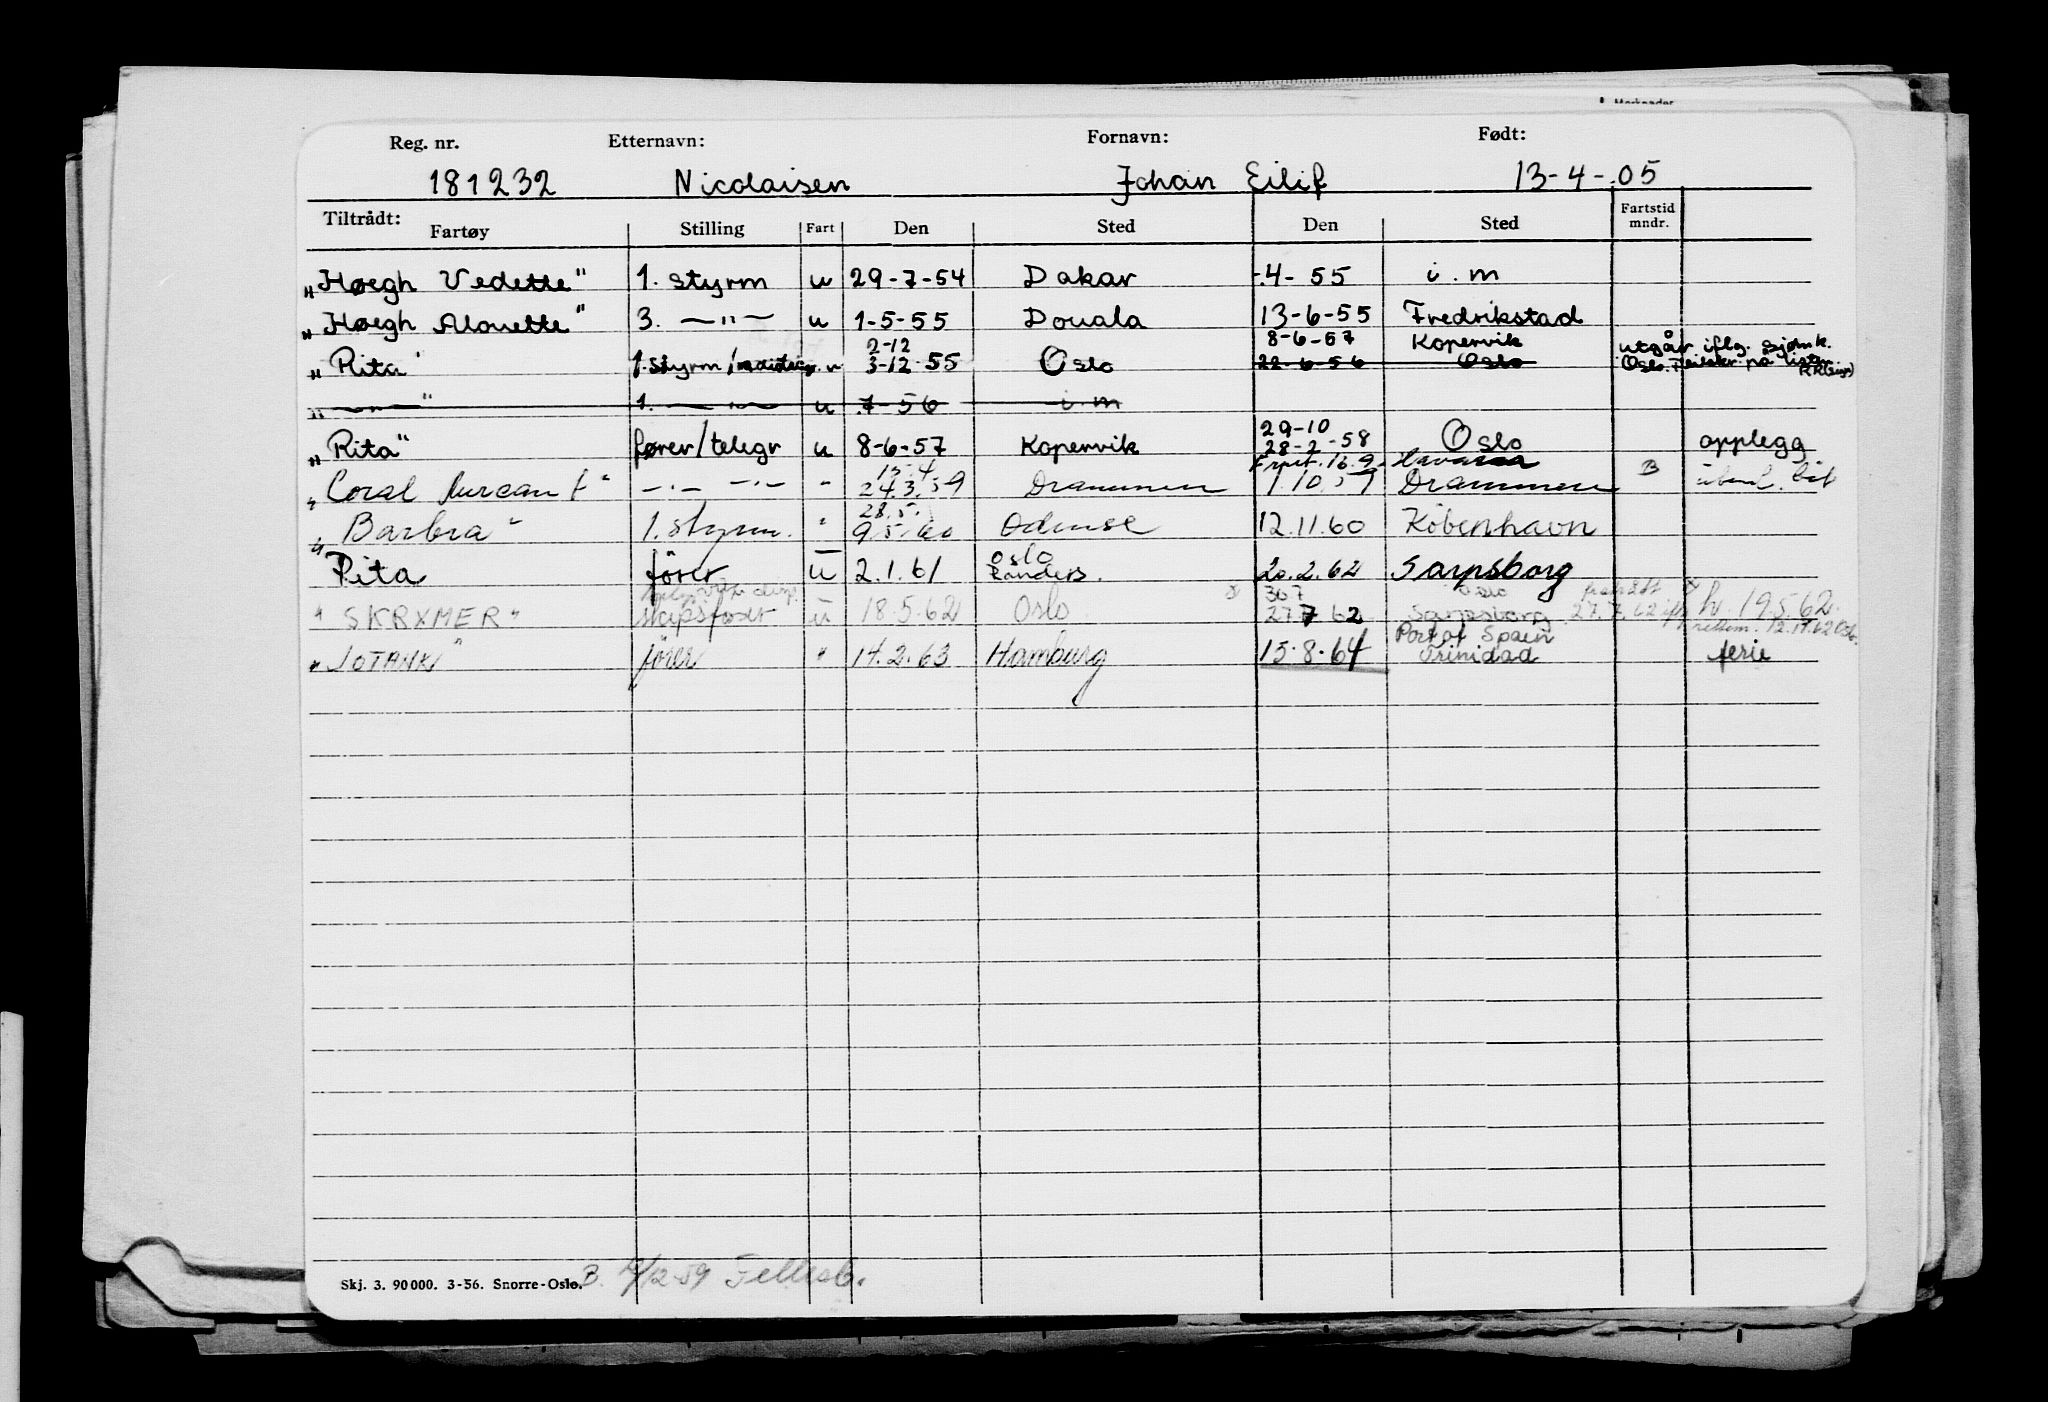 Reg. nr. Etternavn: Fornavn: Født:
181232 Nicolaisen Johan Eilif 13-4-05
Tiltrådt: Fartøy Stilling Fart Den Sted Den Sted Fartstid mndr.
„Høegh Vedette" 1. styrm u 29-7-54 Dakar -4-55 i.m
„Høegh Alouette" 3. —"— u 1-5-55 Douala 13-6-55 Fredrikstad
2-12 8-6-57 Kopervik utgår iflg. sjømk.
„Rita" 1. styrm/ u 3-12-55 Oslo 22-6-56 Oslo Oslo. på
„—"—" 1. —"— u 7-56 i.m
29-10
„Rita" fører/telegr u 8-6-57 Kopervik 28-2-58 Oslo opplegg
16.9
„Coral " —"— —"— " 24.3.59 Drammen 1.10.59 Drammen B
28.5.
„Barbra" 1. styrm. " 9.5.60 Odense 12.11.60 København
Oslo
„Rita fører u 2.1.61 Randers. 20.2.62 Sarpsborg
30 7 Oslo
"SKRYMER" u 18.5.62 Oslo 27 7 62 Sarpsborg 27.7.62 h. 19.5.62.
Port of Spain 12.11.62 Oslo.
"JOTANK" fører " 14.2.63 Hamburg 15.8.64 Trinidad ferie
Skj. 3. 90000. 3-56. Snorre-Oslo. B. /12-59